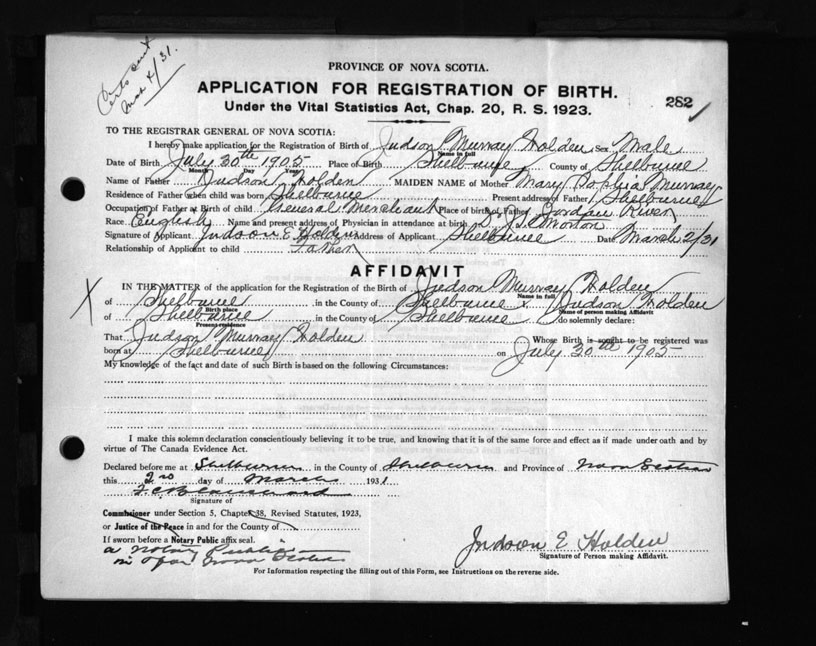 Mar 4/31.
PROVINCE OF NOVA SCOTIA.
APPLICATION FOR REGISTRATION OF BIRTH.
Under the Vital Statistics Act, Chap. 20, R. S. 1923.
282
TO THE REGISTRAR GENERAL OF NOVA SCOTIA:
I hereby make application for the Registration of Birth of Judson Murray Holden Sex Male
Name in full
Date of Birth July 30th 1905 Place of Birth Shelburne County of Shelburne
Month Day Year
Name of Father Judson Holden MAIDEN NAME of Mother Mary Sophia Murray
Residence of Father when child was born Shelburne Present address of Father Shelburne
Occupation of Father at Birth of child General Merchant Place of birth of Father Jordan River
Race English Name and present address of Physician in attendance at birth Morton
Signature of Applicant Judson E Holden Address of Applicant Shelburne Date March 2/31
Relationship of Applicant to child Father
AFFIDAVIT
X IN THE MATTER of the application for the Registration of the Birth of Judson Murray Holden
Name in full
of Shelburne in the County of Shelburne Judson Holden
Birth place Name of person making Affidavit
of Shelburne in the County of Shelburne do solemnly declare:
Present residence
That Judson Murray Holden Whose Birth is sought to be registered was
born at Shelburne on July 30th 1905
My knowledge of the fact and date of such Birth is based on the following Circumstances:
I make this solemn declaration conscientiously believing it to be true, and knowing that it is of the same force and effect as if made under oath and by
virtue of The Canada Evidence Act.
Declared before me at Shelburne in the County of Shelburne and Province of Nova Scotia
this 2nd day of March 1931
Signature of
Commissioner under Section 5, Chapter 38, Revised Statutes, 1923,
or Justice of the Peace in and for the County of
If sworn before a Notary Public affix seal.
a Notary Public
in & for Nova Scotia
Judson E Holden
Signature of Person making Affidavit.
For Information respecting the filling out of this Form, see Instructions on the reverse side.